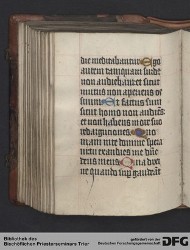 die meditabantur Ego
autem tamquam surdus
non audiebam et sicut
mutus non aperiens os
suum Et factus sum
sicut homo non audiens
et non habens in ore suo
redargutiones Quoniam
in te domine speravi
tu exaudies me domine
deus meus Quia dixi
ne quando supergaudeant
Bibliothek des
Bischöflichen Priesterseminars Trier
gefördert von der
Deutschen Forschungsgemeinschaft
DFG